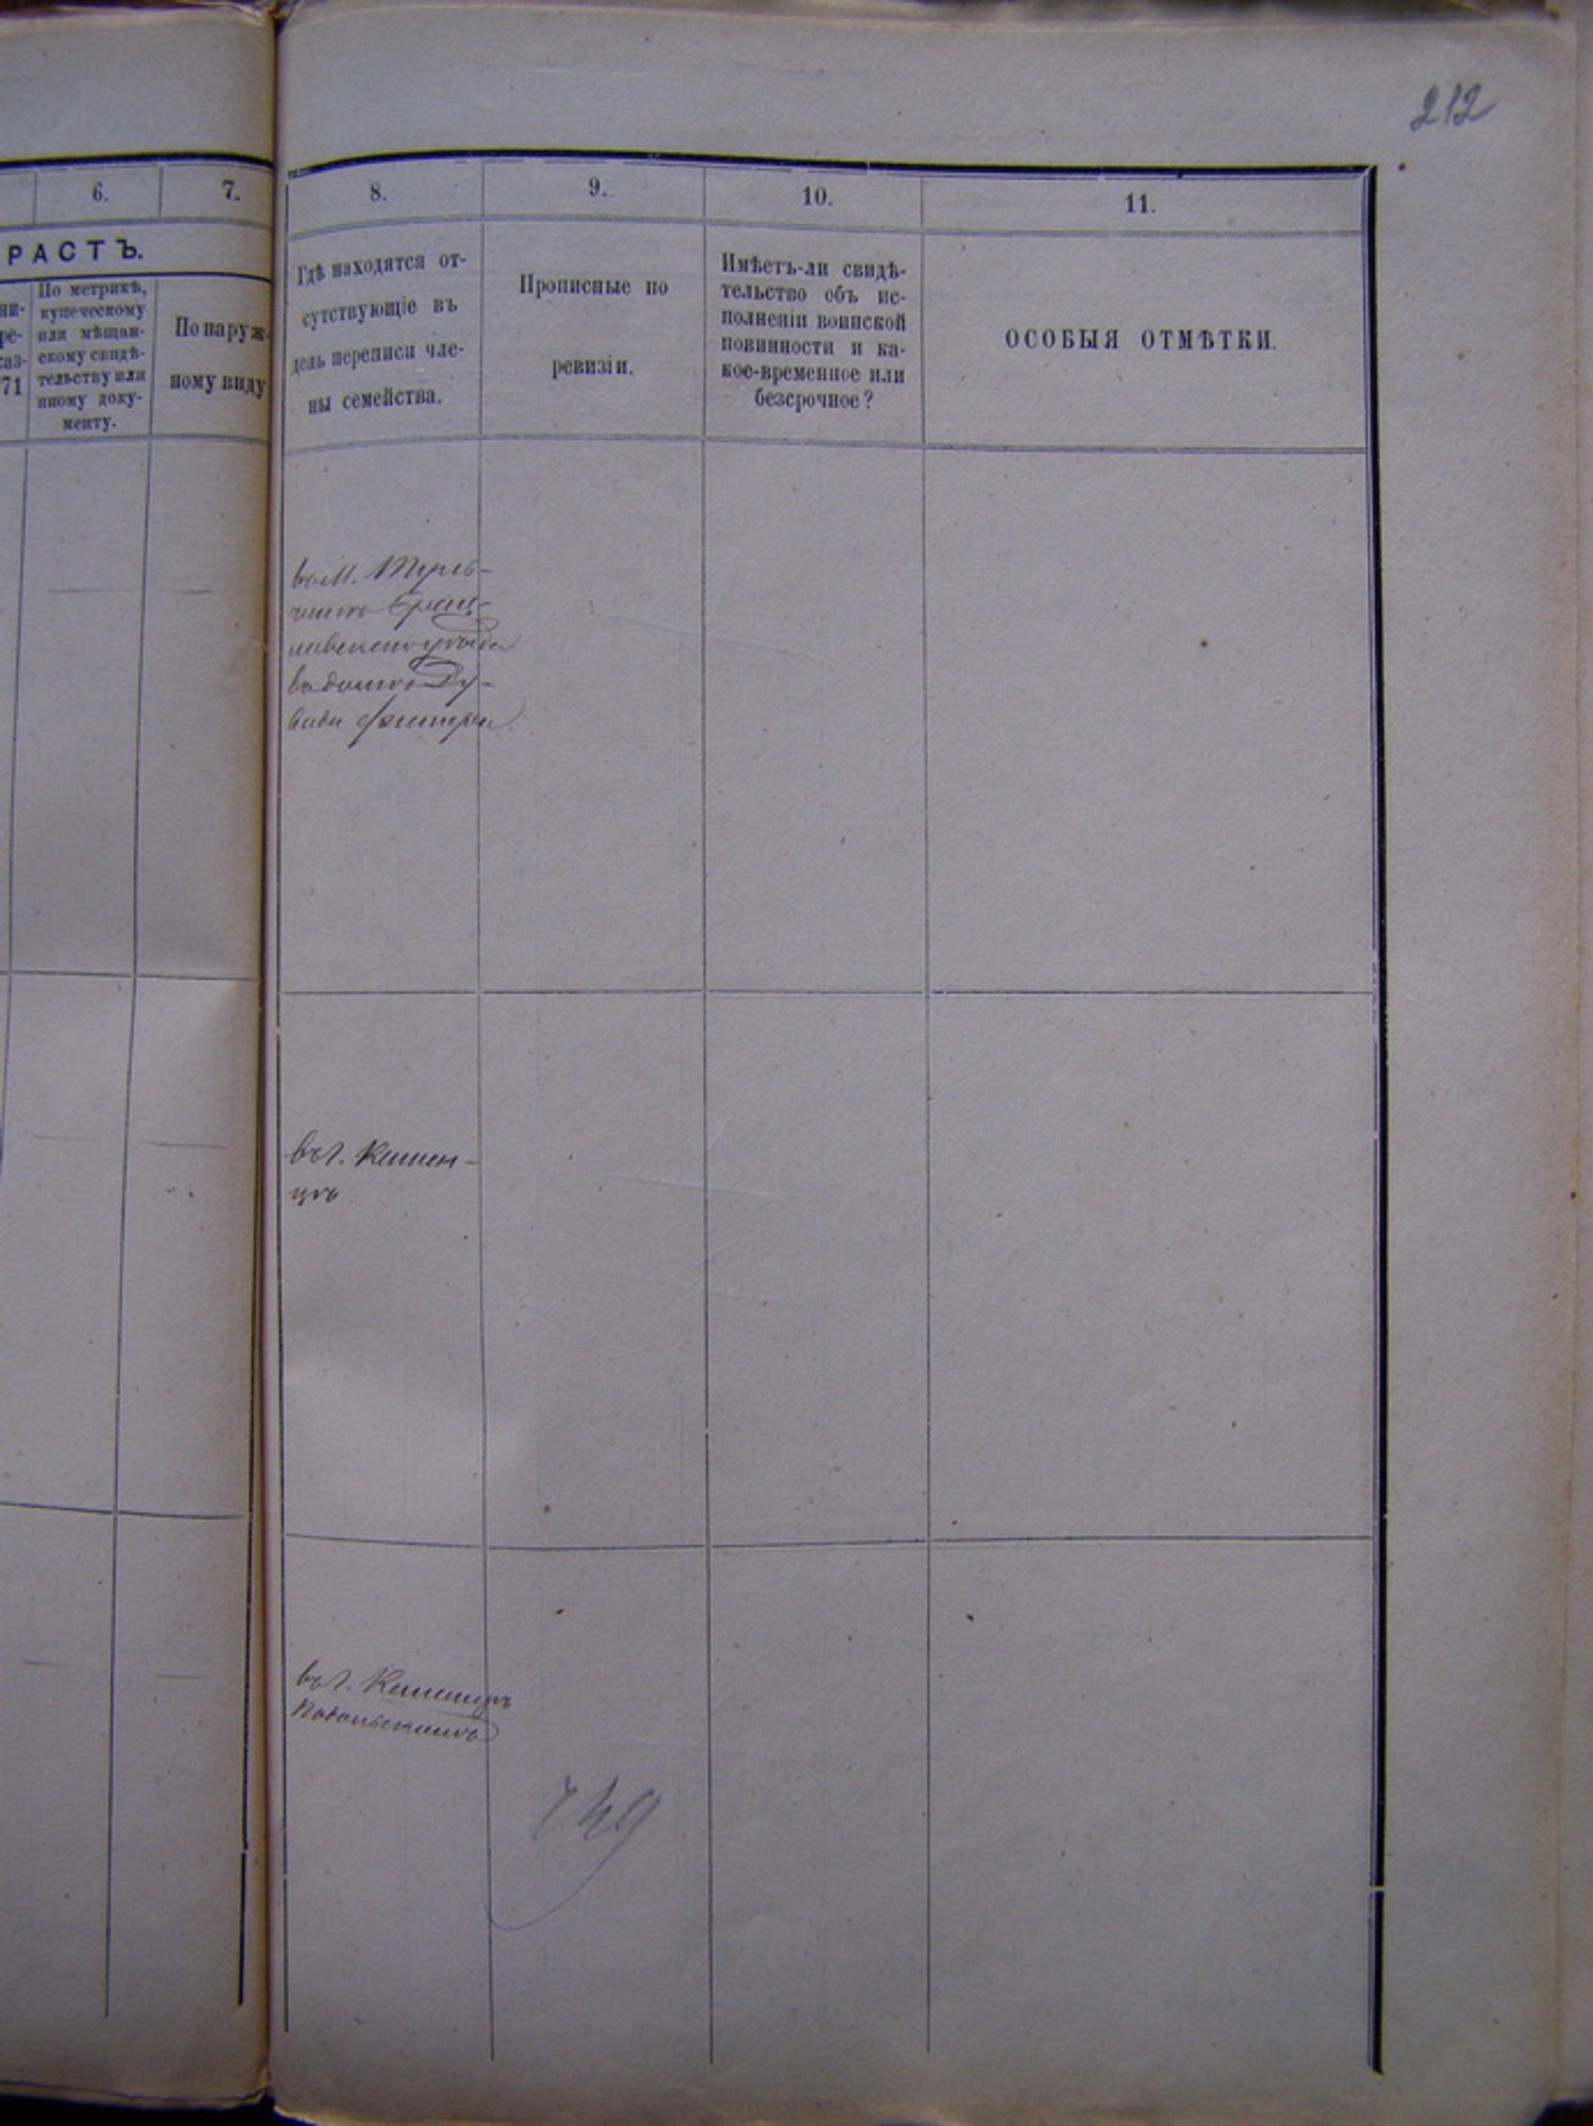 212
6.
7.
8.
9.
10.
11.
РАСТЪ.
ни-
ре-
каз-
71
По метрикѣ,
купеческому
или мѣщан-
скому свидѣ-
тельству или
иному доку-
менту.
По наруж-
ному виду
Гдѣ находятся от-
сутствующіе въ
день переписи чле-
ны семейства.
Прописные по
ревизіи.
Имѣетъ-ли свидѣ-
тельство объ ис-
полненіи воинской
повинности и ка-
кое-временное или
безсрочное?
ОСОБЫЯ ОТМѢТКИ.
въ М. Туль-
чинѣ Брац-
лавскаго уѣзда
въ домѣ Ду-
вида
въ г. Камен-
цѣ
въ г. Каменцѣ
Подольскомъ